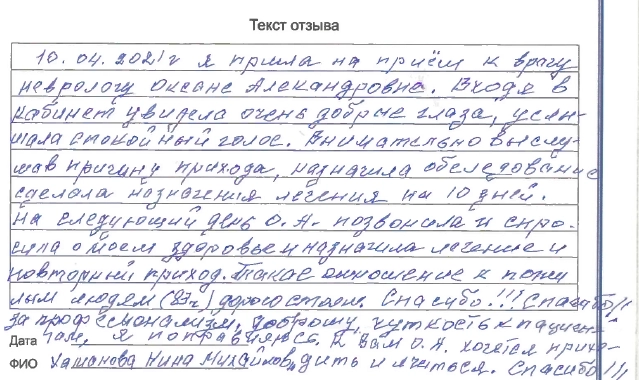 Текст отзыва
10.04.2021г я пришла на приём к врачу
неврологу Оксане Александровне. Входя в
кабинет увидела очень добрые глаза, услы-
шала спокойный голос. Внимательно выслу-
шав причину прихода, назначила обследование
сделала назначения лечения на 10 дней.
На следующий день О.А. позвонила и спро-
сила о моём здоровье и назначила лечение и
повторный приход. Такое отношение к пожи
лым людям (83г) дорого стоит. Спасибо!!! Спасибо!!
за профессионализм, доброту, чуткость к пациен-
Дата там, я поправляюсь. К Вам О.А. хочется прихо-
ФИО Нина Михайлов. дить и лечиться. Спасибо!!!